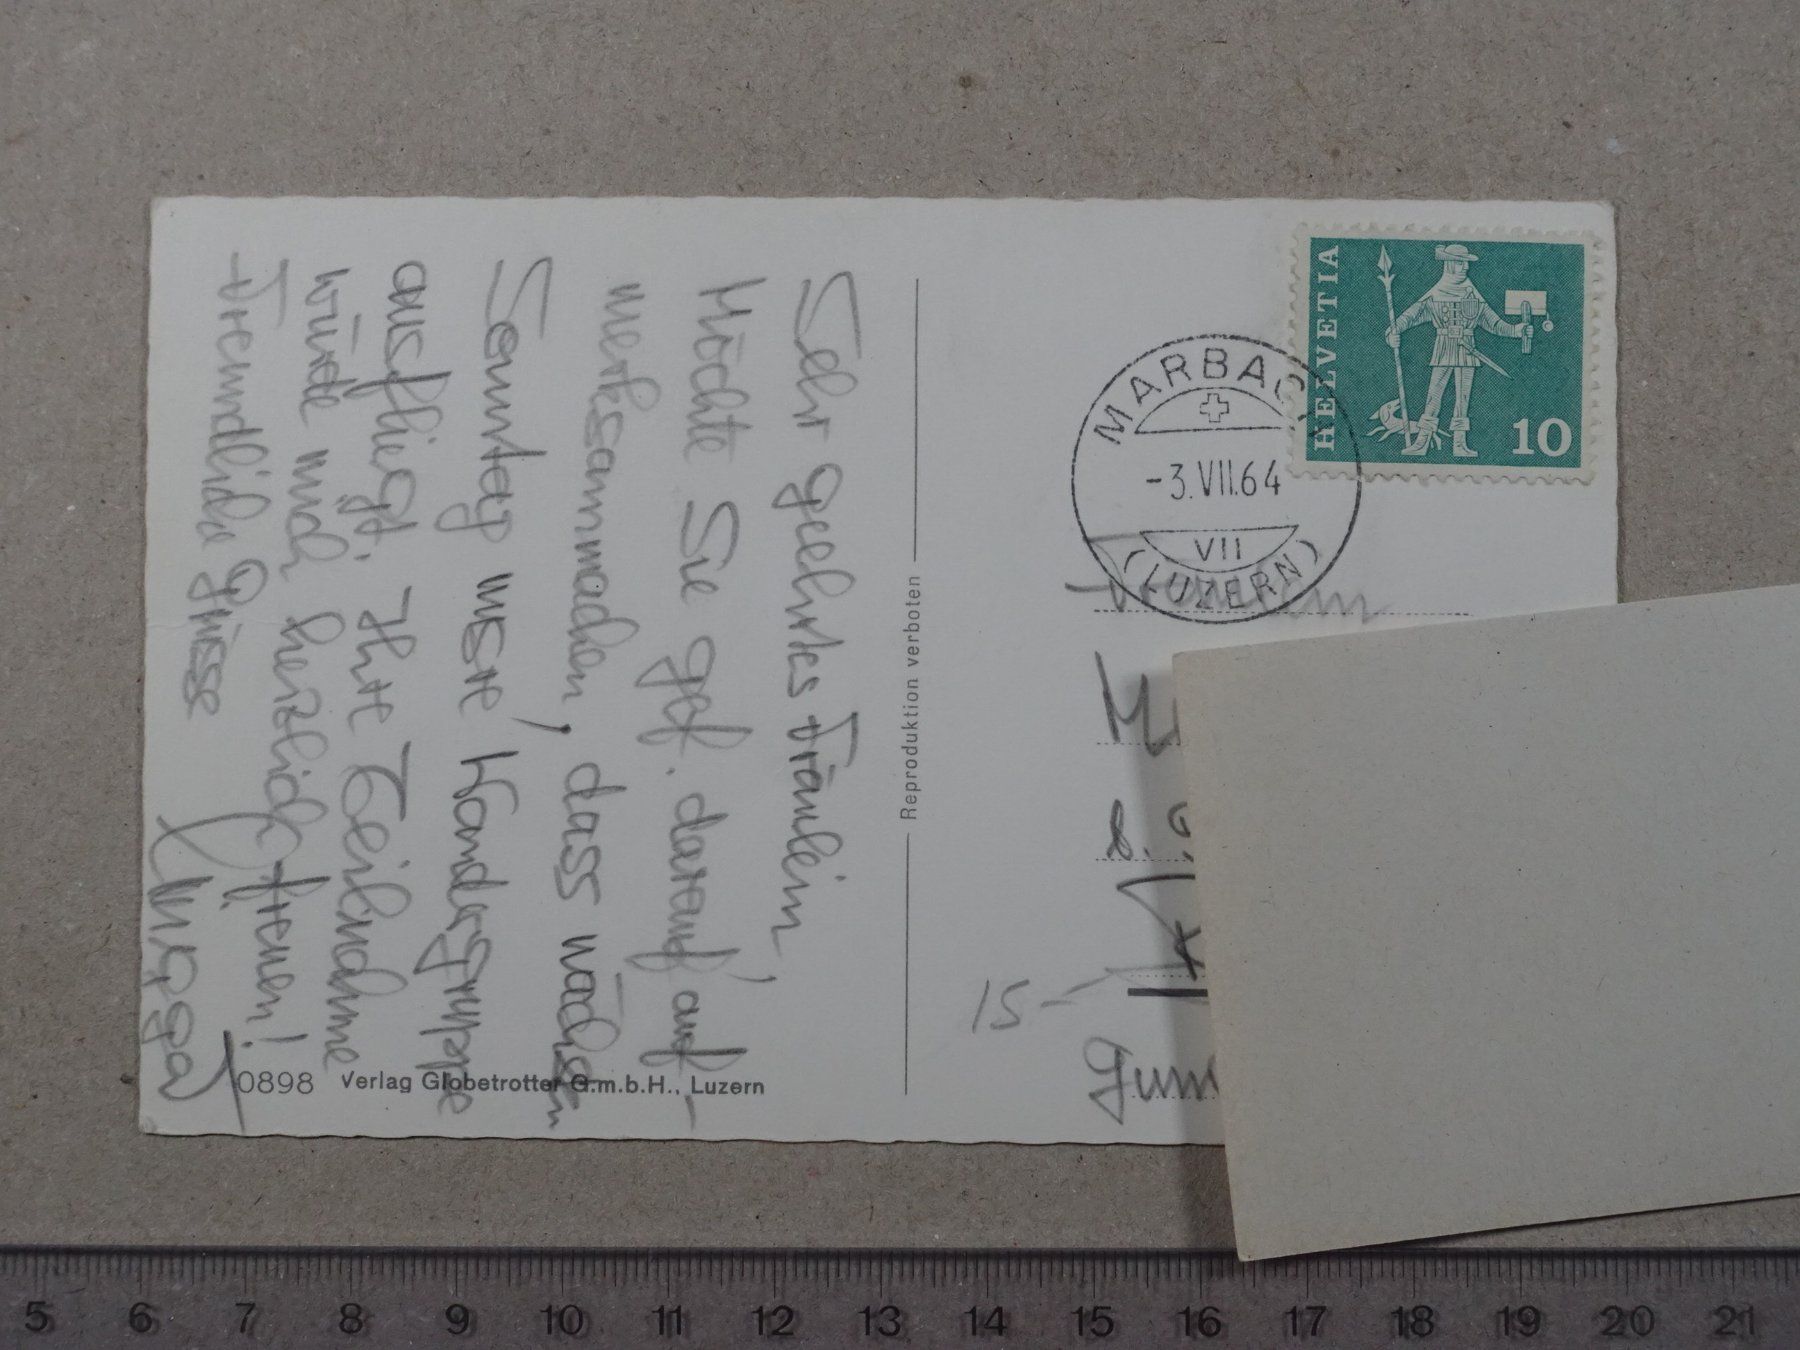 Sehr geehrtes Fräulein,
Möchte Sie gef. darauf auf-
merksammachen, dass nächsten
Sonntag unsre Wandergruppe
ausfliegt. Ihre Teilnahme
würde mich herzlich freuen!
Freundliche Grüsse
0898 Verlag Globetrotter G.m.b.H., Luzern
Reproduktion verboten
HELVETIA
10
MARBACH
-3.VII.64
VII
(LUZERN)
Fräulein
15-
5 6 7 8 9 10 11 12 13 14 15 16 17 18 19 20 21